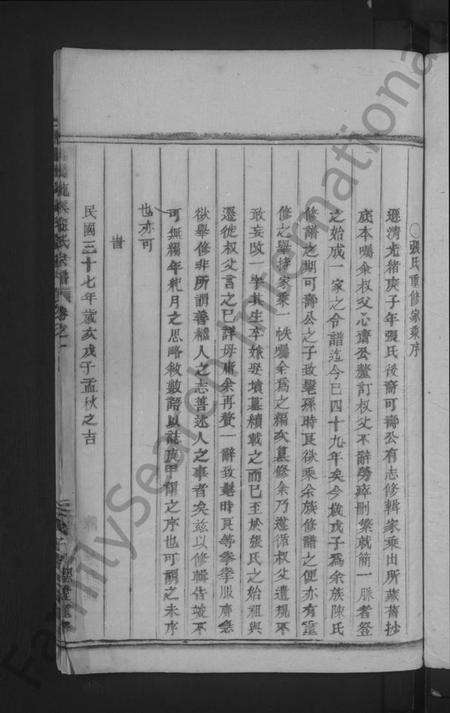 ○張氏重修家乘序
遜清光緒庚子年張氏後裔可壽公有志修輯家乘出所藏舊抄
底本囑余叔父心齋公釐訂叔父不辭勞瘁刪繁就簡一脈耆登
之始成一家之令譜迄今已四十九年矣今歲戊子為余族陳氏
修譜之期可壽公之子孜髦孫時艮欲乘余族修譜之便亦有重
修之舉持家乘一帙囑余為之編次纂修余乃遵循叔父遺規不
敢妄改一學其生卒娘娶墳墓續載之而已至於張氏之始祖與
遷徙叔父言之已詳毋庸余再贅一辭孜髦時艮等拳拳服膺急
欲舉修非所謂善繼人之志善述人之事者矣茲以修輯告竣不
可無獨年杞月之思略敘數語以誌庚甲謂之序也可謂之未序
也亦可
旹
民國三十七年歲次戊子孟秋之吉
張氏宗譜 卷之一
FamilySearch International